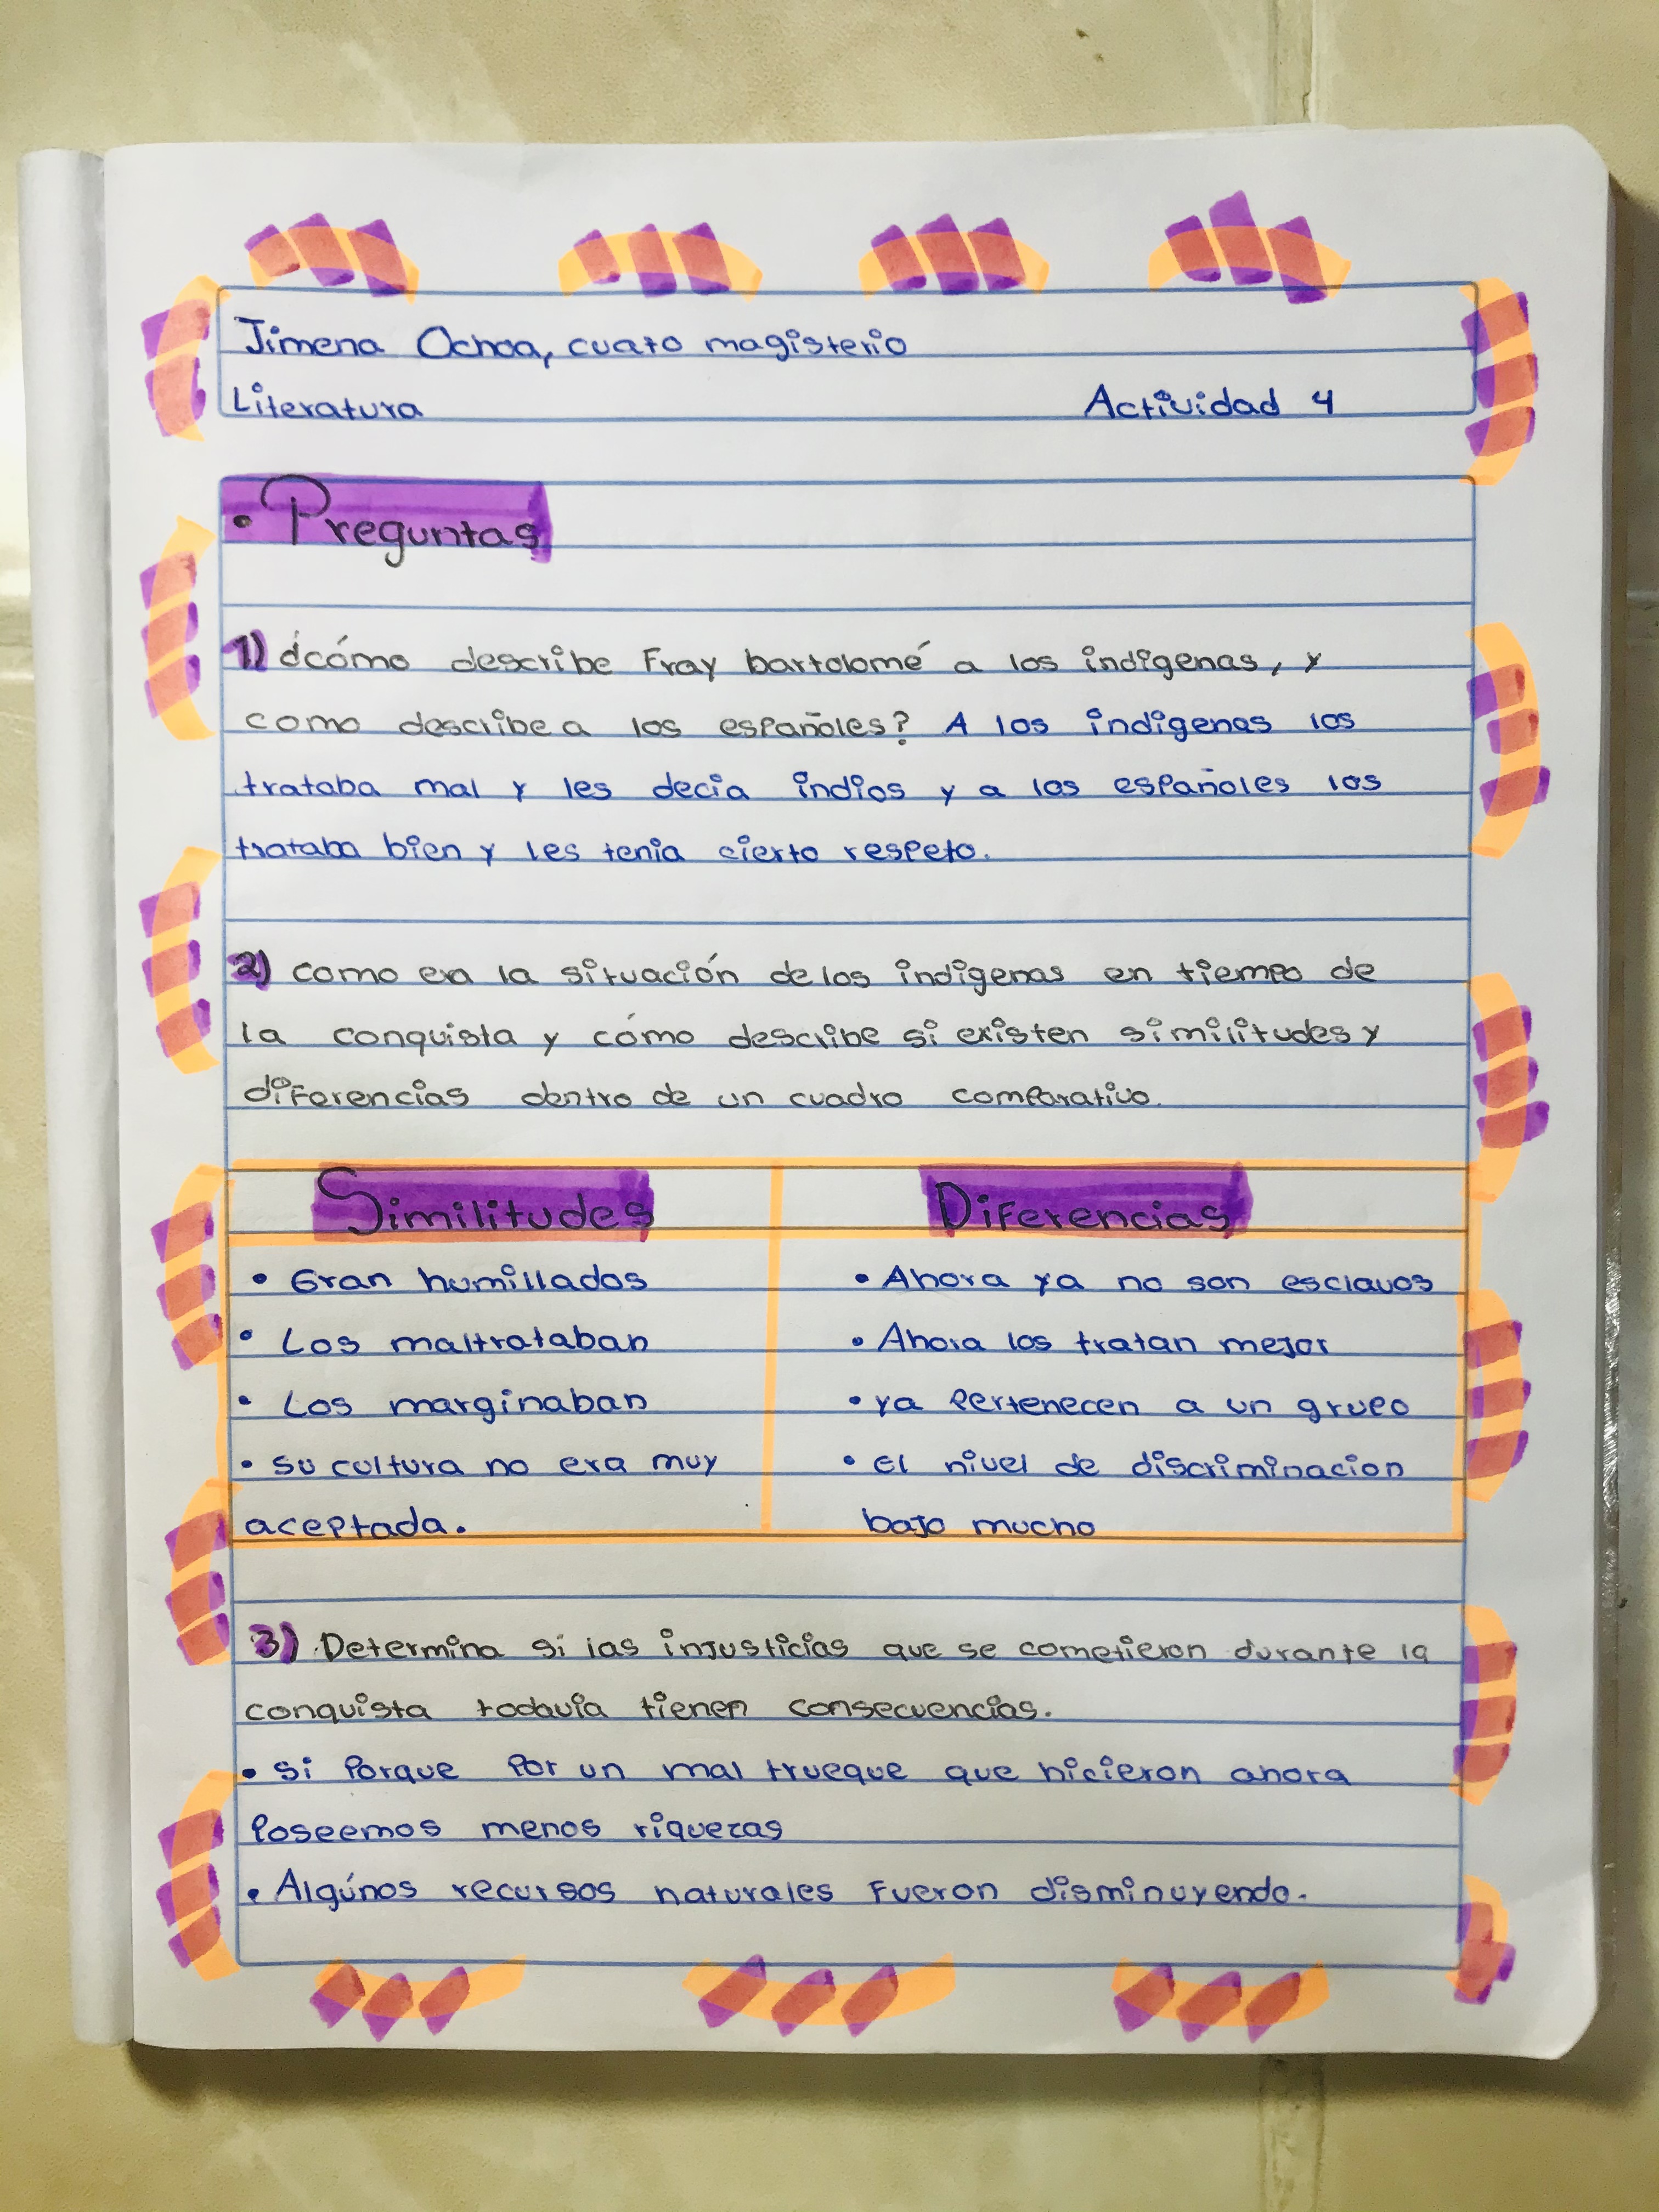 Jimena Ochoa, cuato magisterio
Literatura Actividad 4
• Preguntas
1) ¿cómo describe Fray bartolomé a los indigenas, y
como describe a los españoles? A los indigenas los
trataba mal y les decia indios y a los españoles los
trataba bien y les tenia cierto respeto.
2) como era la situación de los indigenas en tiempo de
la conquista y cómo describe si existen similitudes y
diferencias dentro de un cuadro comparativo.
Similitudes Diferencias
• Eran humillados • Ahora ya no son esclavos
• Los maltrataban • Ahora los tratan mejor
• Los marginaban • ya pertenecen a un grupo
• su cultura no era muy • El nivel de discriminacion
aceptada. bajo mucho
3) Determina si las injusticias que se cometieron durante la
conquista todavia tienen consecuencias.
• si porque por un mal trueque que hicieron ahora
poseemos menos riquezas
• Algúnos recursos naturales fueron disminuyendo.